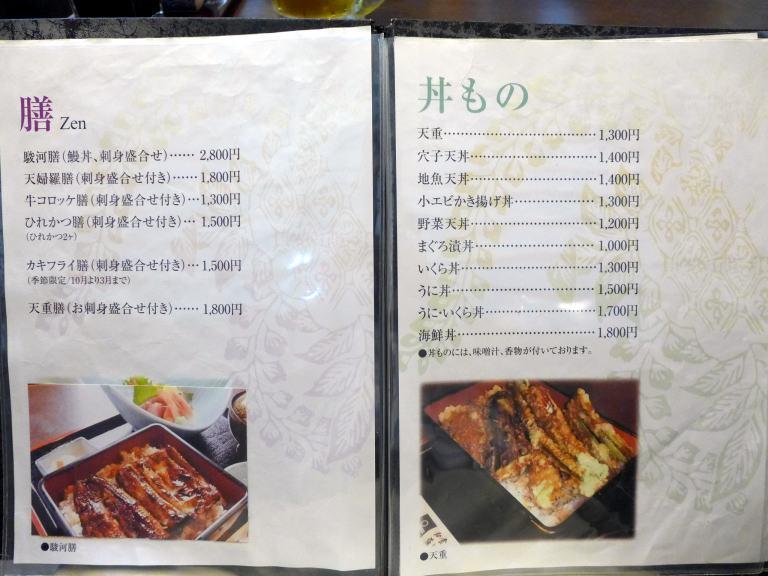 膳 Zen
駿河膳（鰻丼、刺身盛合せ）…… 2,800円
天婦羅膳（刺身盛合せ付き）…… 1,800円
牛コロッケ膳（刺身盛合せ付き）…1,300円
ひれかつ膳（刺身盛合せ付き）… 1,500円
（ひれかつ2ヶ）
カキフライ膳（刺身盛合せ付き）…1,500円
（季節限定/10月より3月まで）
天重膳（お刺身盛合せ付き）…… 1,800円
●駿河膳
丼もの
天重…………………………… 1,300円
穴子天丼……………………… 1,400円
地魚天丼……………………… 1,400円
小エビかき揚げ丼…………… 1,300円
野菜天丼……………………… 1,200円
まぐろ漬丼…………………… 1,000円
いくら丼……………………… 1,300円
うに丼………………………… 1,500円
うに・いくら丼……………… 1,700円
海鮮丼………………………… 1,800円
●丼ものには、味噌汁、香物が付いております。
●天重